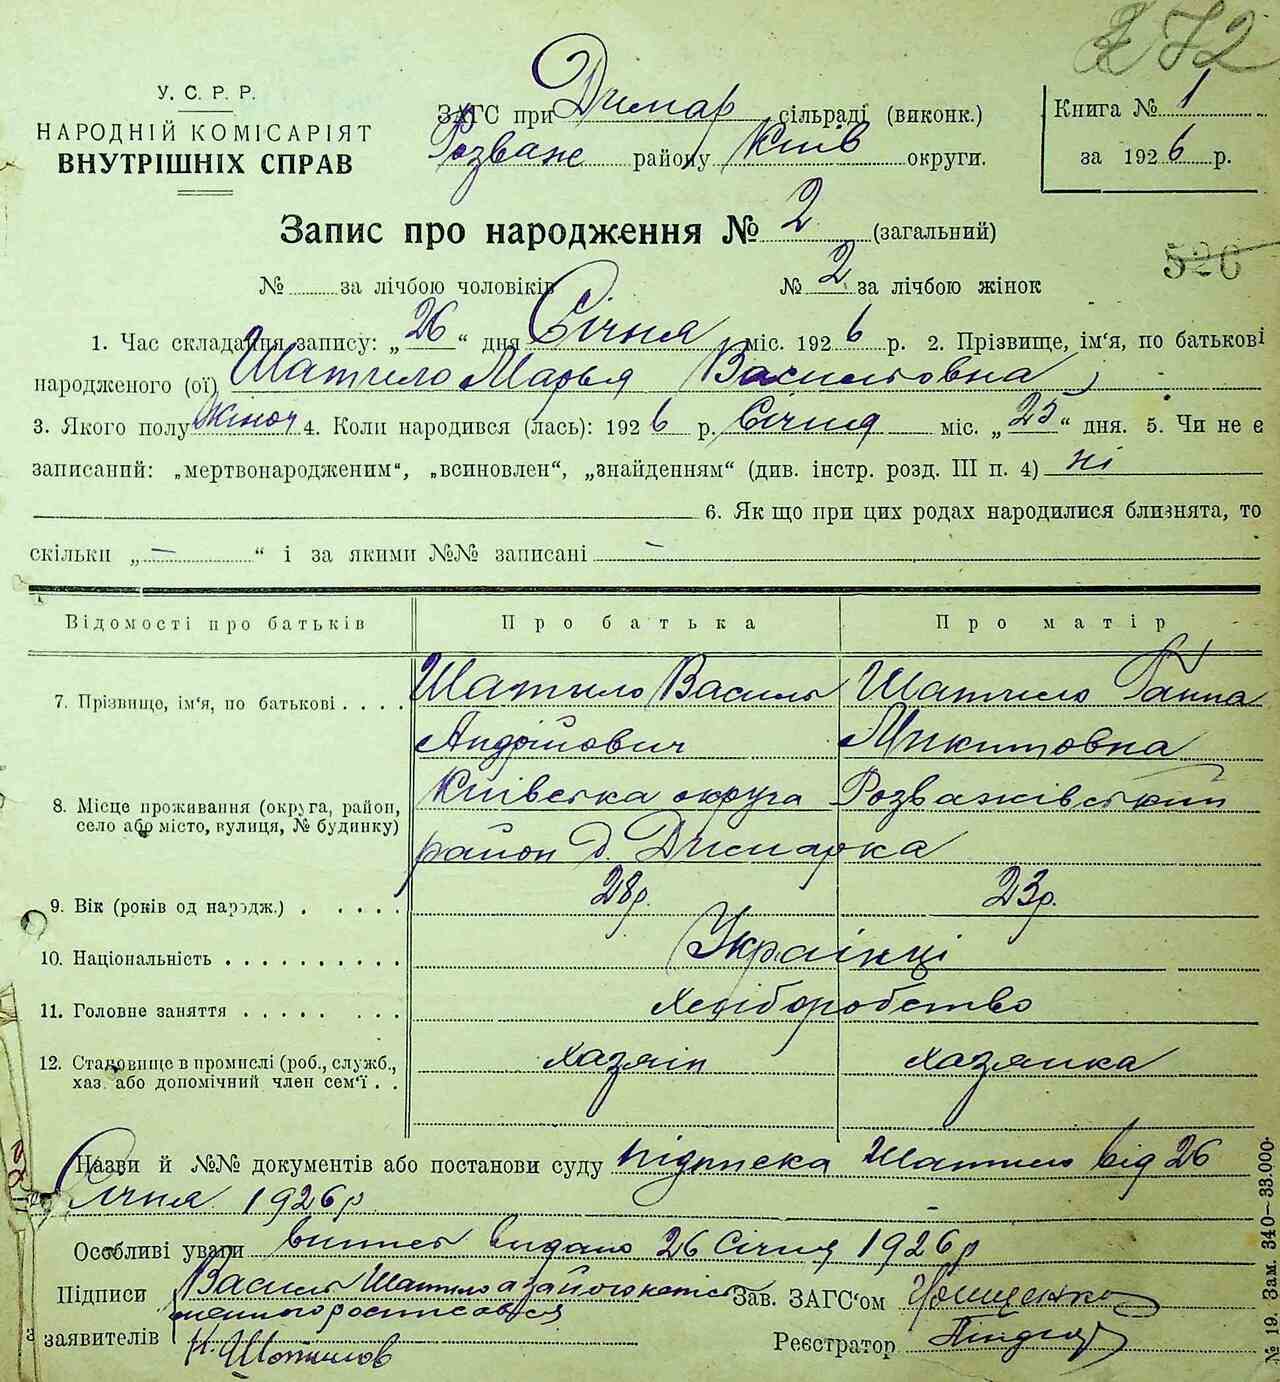 У. С. Р. Р.
НАРОДНІЙ КОМІСАРІЯТ
ВНУТРІШНІХ СПРАВ
ЗАГС при Димар сільраді (виконк.)
Розваж району Київ округи.
Книга № 1
за 1926 р.
72
Запис про народження № 2 (загальний)
526
№ за лічбою чоловіків № 2 за лічбою жінок
1. Час складання запису: „26“ дня Січня міс. 1926 р. 2. Прізвище, ім'я, по батькові
народженого (ої) Шатило Марья Василовна
3. Якого полу жіноч 4. Коли народився (лась): 1926 р. Січня міс. „25“ дня. 5. Чи не є
записаний: „мертвонародженим“, „всиновлен“, „знайденням“ (див. інстр. розд. III п. 4) ні
6. Як що при цих родах народилися близнята, то
скільки „ — “ і за якими №№ записані —
Відомості про батьків Про батька Про матір
7. Прізвище, ім'я, по батькові . . . . Шатило Василь Шатило Ганна
Андрійович Микитовна
8. Місце проживання (округа, район, Київська округа Розважівський
село або місто, вулиця, № будинку) район д. Димарка
9. Вік (років од народж.) . . . . . 28р. 23р.
10. Національність . . . . . . . . . . Українці
11. Головне заняття . . . . . . . . Хліборобство
12. Становище в промислі (роб., служб., хазяін хазяйка
хаз. або допомічний член сем'ї . .
Назви й №№ документів або постанови суду підписка Шатило від 26
Січня 1926р
Особливі уваги витяг видано 26 Січня 1926р
Підписи Василь Шатило а за його Зав. ЗАГС'ом
росписовся
заявителів Н. Шатилов Реєстратор
№ 19. Зам. 340—33.000.